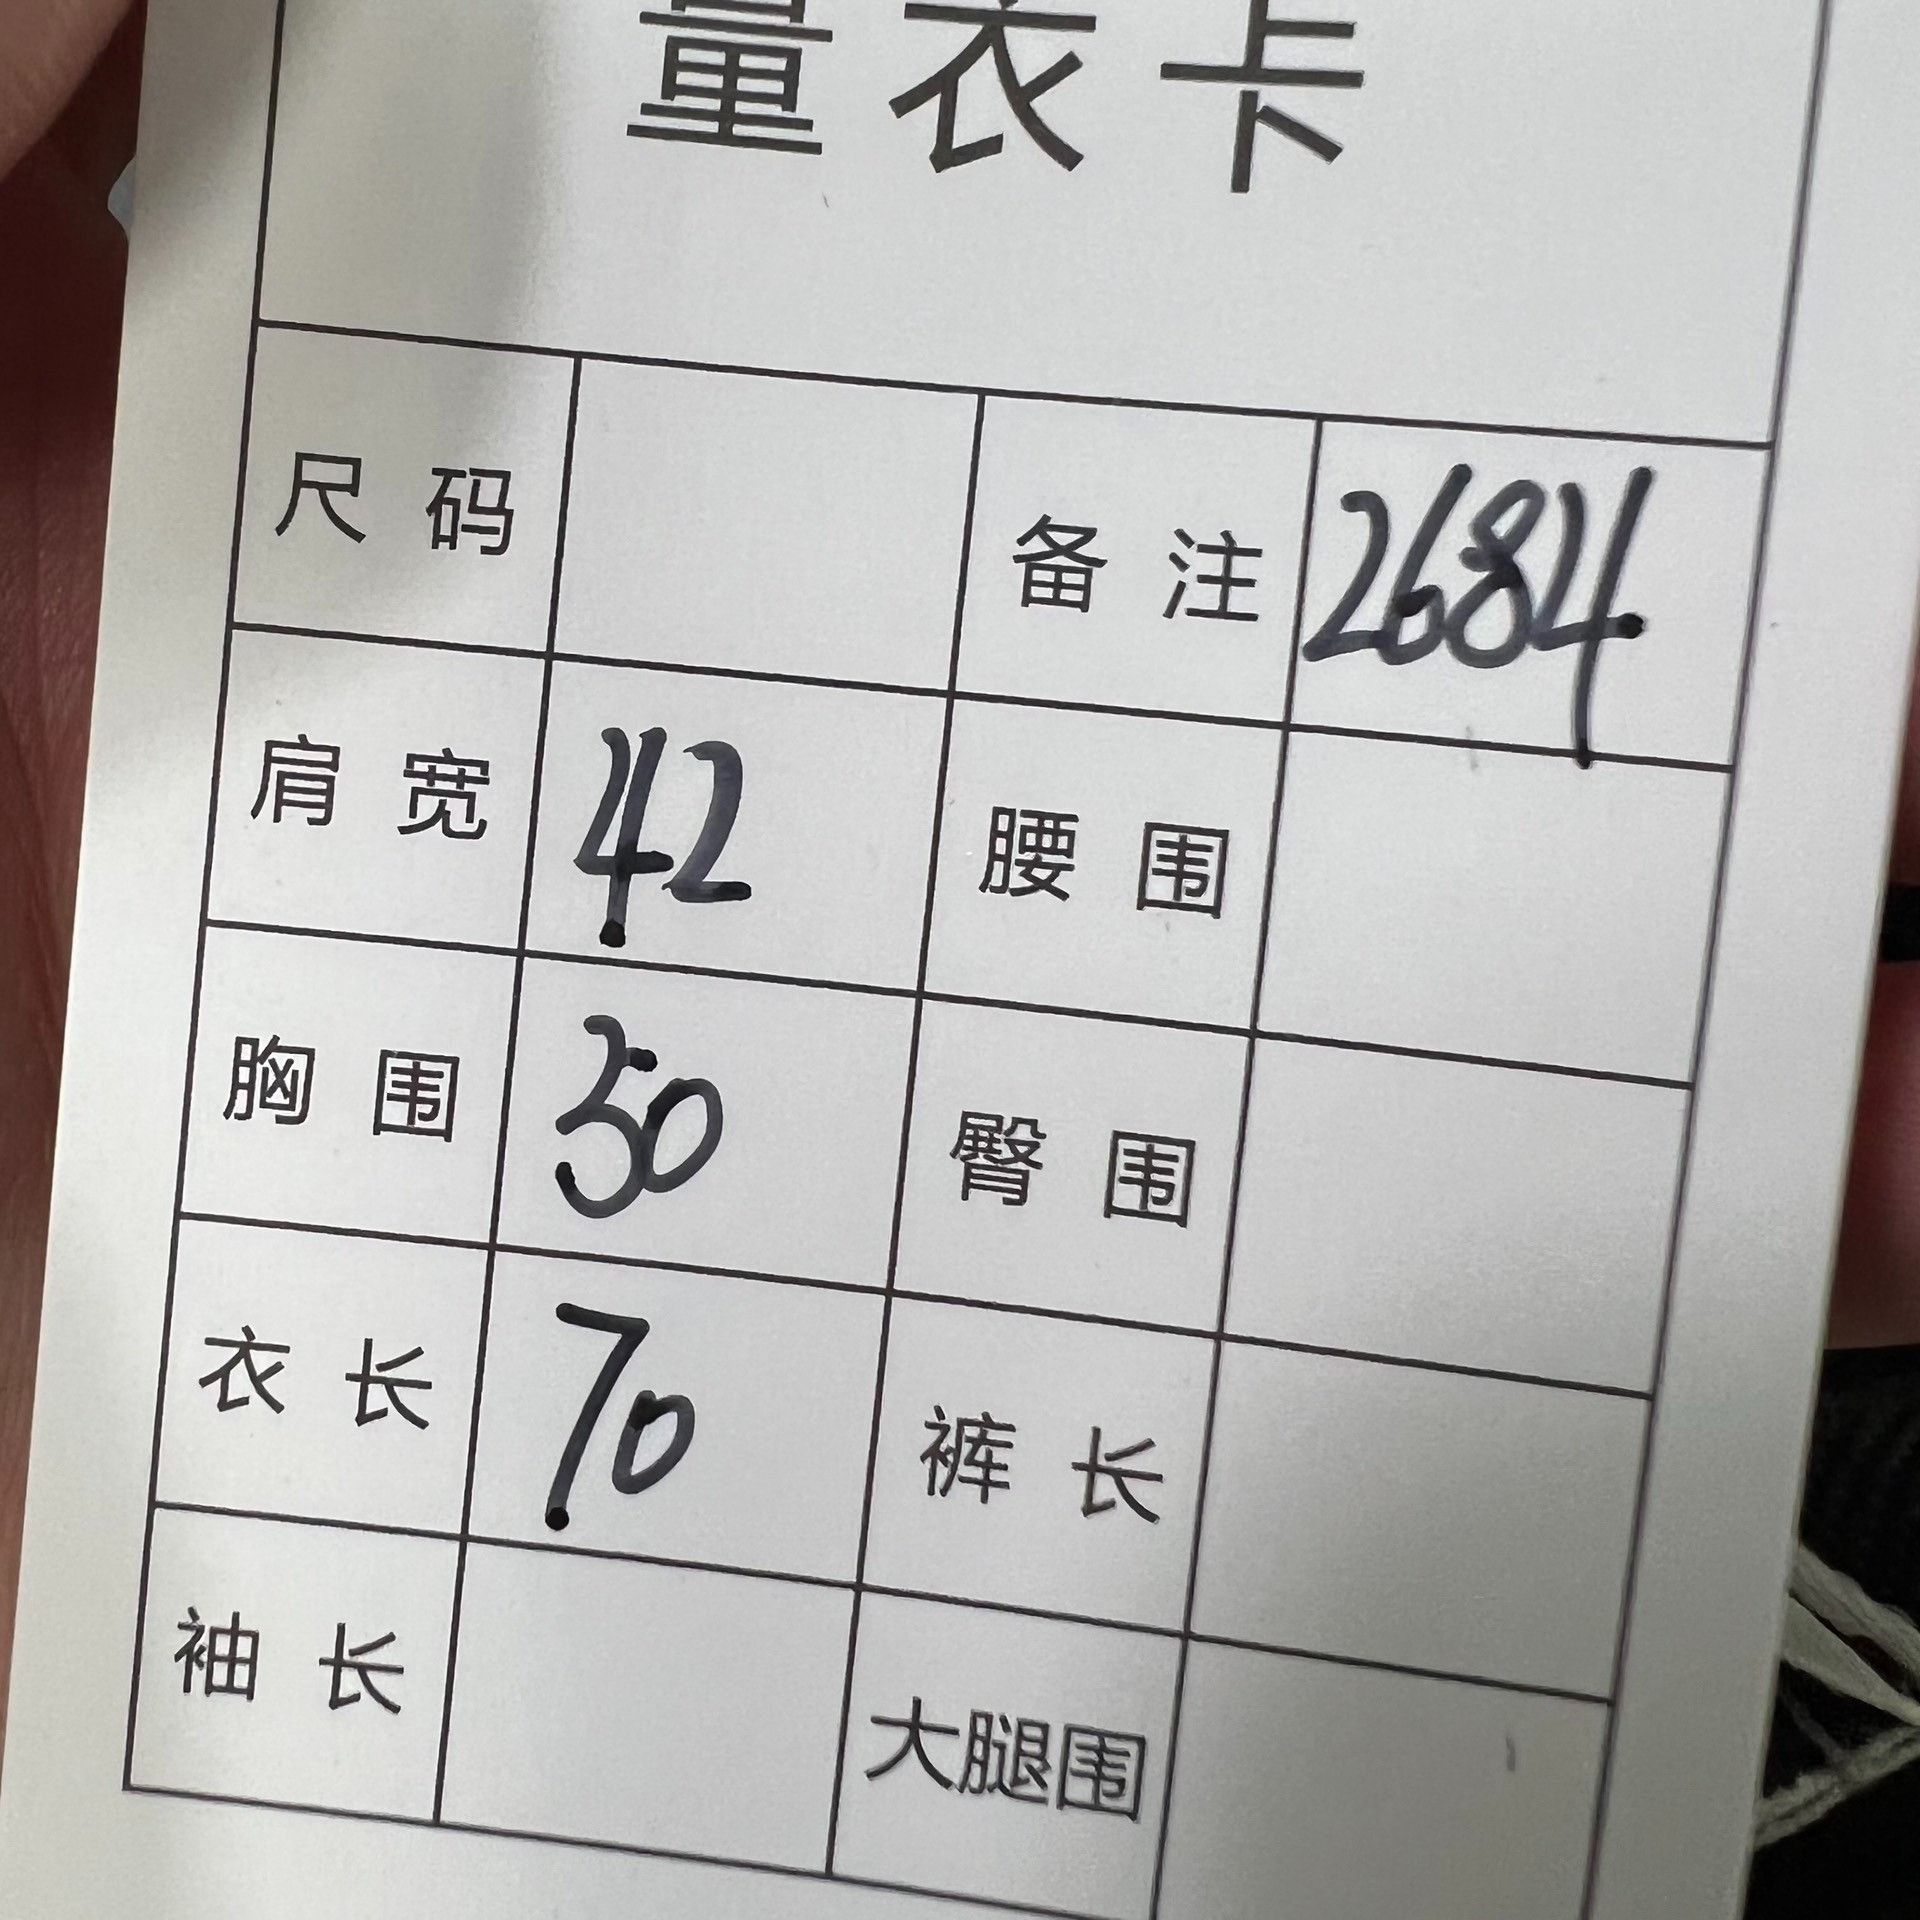 量衣卡
尺码 备注 2684
肩宽 42 腰围
胸围 50 臀围
衣长 70 裤长
袖长 大腿围